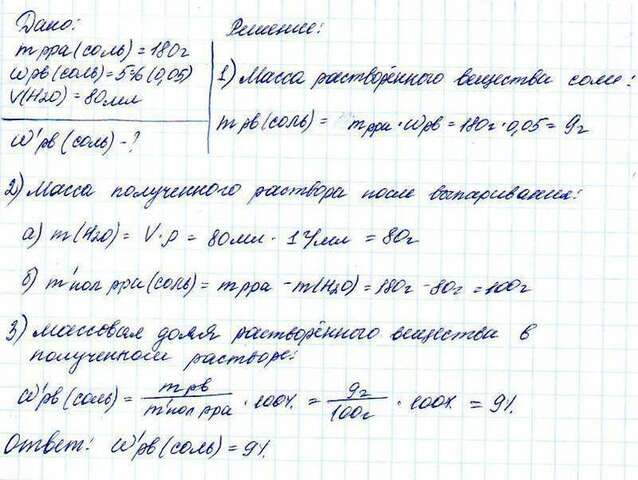 Дано:
m рра (соль) = 180г
ωрв (соль) = 5% (0,05)
V(H2O) = 80мл
ω'рв (соль) - ?
Решение:
1) Масса растворённого вещества соли:
m рв (соль) = m рра · ωрв = 180г · 0,05 = 9г
2) Масса полученного раствора после выпаривания:
а) m(H2O) = V·ρ = 80мл · 1г/мл = 80г
б) m'пол рра (соль) = m рра - m(H2O) = 180г - 80г = 100г
3) массовая доля растворённого вещества в
полученном растворе:
ω'рв (соль) = m рв / m'пол рра · 100% = 9г / 100г · 100% = 9%
Ответ: ω'рв (соль) = 9%.